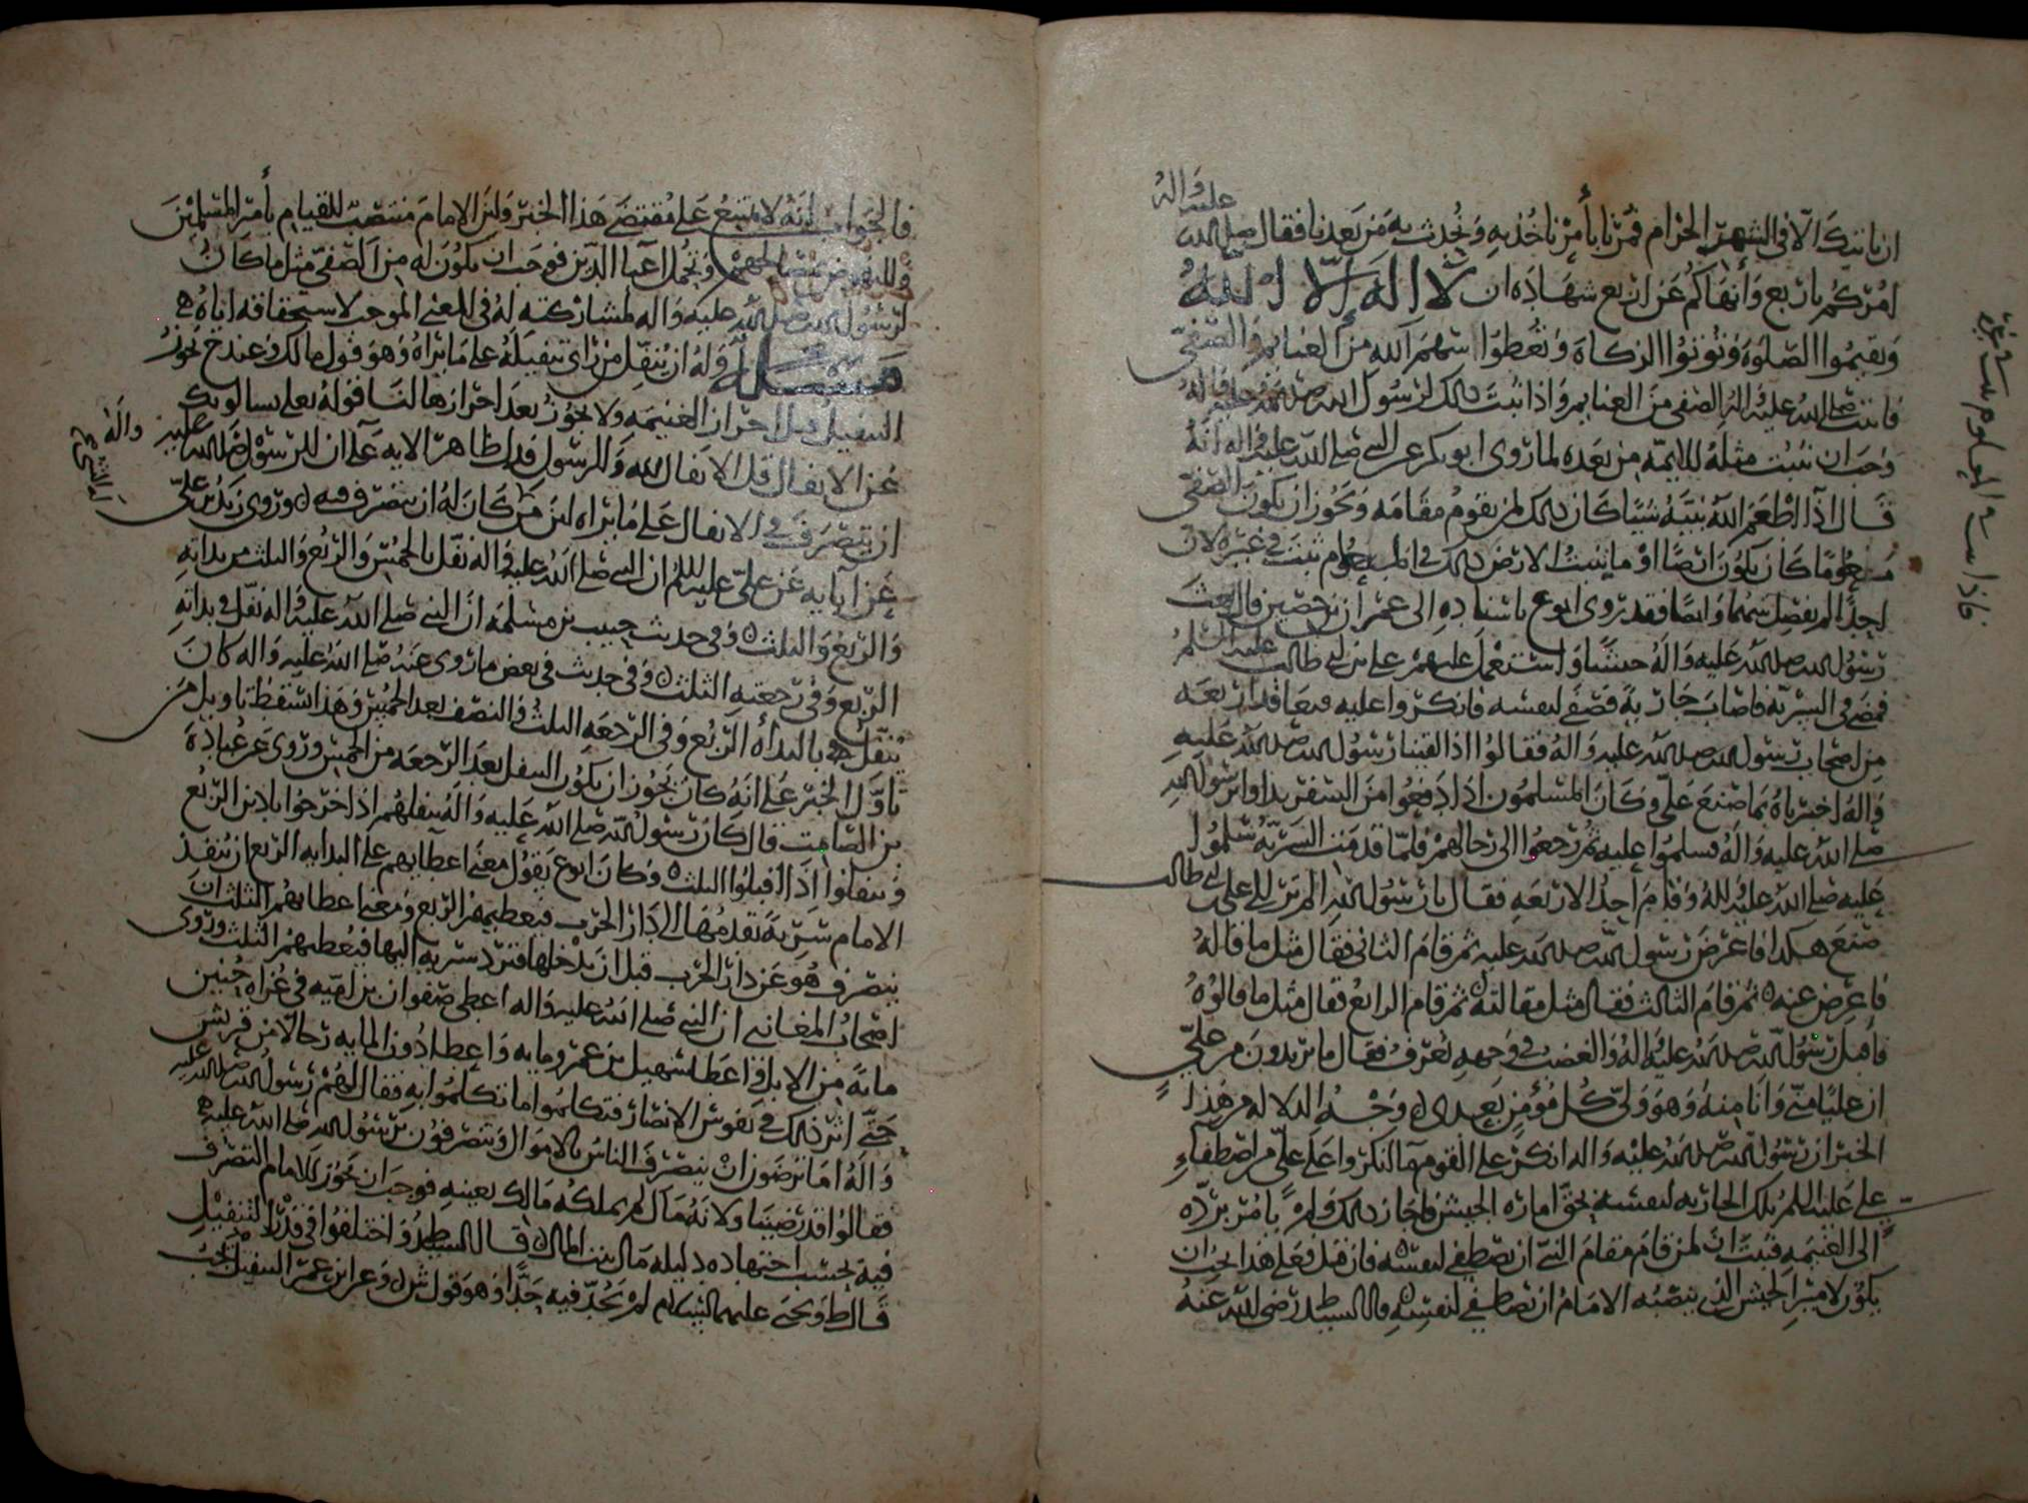 ان ناتيك الا في الشهر الحرام فمرنا بأمر ناخذ به ونحدث به من بعدنا فقال صلى الله
عليه واله
امركم باربع وأنهاكم عن اربع شهادة ان لا اله الا الله
وتقيموا الصلوة وتوتوا الزكاة وتعطوا سهم الله من الغنايم والصفي
فاثبت صلى الله عليه واله الصفي من الغنايم واذا ثبت ذلك لرسول الله
وجب ان يثبت مثله للايمة من بعده لما روى ابو بكر عن النبي صلى الله عليه واله انه
قال اذا اطعم الله نبيه شيا كان ذلك لمن يقوم مقامه ويجوز ان يكون الصفي
كان يكون ايضا او ما ينبت الارض ذلك في ثبت في غيره لان
احدا لم يفصل بينهما وايضا فقد روى ابو ع باسناده الى عمران بن حصين قال بعث
رسول الله صلى الله عليه واله جيشا واستعمل عليهم علي بن ابي طالب عليه السلم
فمضى في السرية فاصاب جارية فصفى لنفسه فانكروا عليه فتعاقد اربعة
من اصحاب رسول الله صلى الله عليه واله فقالوا اذا لقينا رسول الله صلى الله عليه
واله اخبرناه بما صنع علي وكان المسلمون اذا رجعوا من السفر بداوا برسول الله
صلى الله عليه واله فسلموا عليه ثم رجعوا الى رحالهم فلما قدمت السرية سلموا
عليه صلى الله عليه واله وقام احد الاربعة فقال يا رسول الله الم تر الى علي بن ابي طالب
صنع هكذا فاعرض رسول الله صلى الله عليه ثم قام الثاني فقال مثل ما قاله
فاعرض عنه ثم قام الثالث فقال مثل مقالته ثم قام الرابع فقال مثل ما قالوه
فاقبل رسول الله صلى الله عليه واله والغضب في وجهه يعرف فقال ما تريدون من علي
ان عليا مني وانا منه وهو ولي كل مؤمن بعدي وجه الدلالة من هذا
الخبر ان رسول الله صلى الله عليه واله انكر على القوم ما انكروا على علي من اصطفاء
علي عليه السلم تلك الجارية لنفسه بحق امارة الجيش فاجاز ذلك ولم يامر برده
الى الغنيمة فثبت ان لمن قام مقام النبي ان يصطفي لنفسه فان قيل فعلى هذا يجب ان
يكون لامير الجيش الذي ينصبه الامام ان يصطفي لنفسه قال السيد ط رضي الله عنه
فالجواب انه لا يمتنع على مقتضى هذا الخبر ولان الامام منتصب للقيام بأمر المسلمين
وللنهوض بمصالحهم وتحمل اعبا الدين فوجب ان يكون له من الصفي مثل ما كان
لرسول الله صلى الله عليه واله لمشاركته له في المعنى الموجب لاستحقاقه اياه
مسئلة وله ان ينفل من راى تنفيله على ما يراه وهو قول مالك وعند ح يجوز
التنفيل قبل احراز الغنيمة ولا يجوز بعد احرازها لنا قوله تعلى يسالونك
عن الانفال قل الانفال لله وللرسول فدل ظاهر الاية على ان للرسول صلى الله عليه واله
ان يتصرف في الانفال على ما يراه لان من كان له ان يتصرف فيه وروى زيد بن علي
عن آبايه عن علي عليه السلم ان النبي صلى الله عليه واله نفل بالخمس والربع والثلث
والربع والثلث وفي حديث حبيب بن مسلمة ان النبي صلى الله عليه واله نفل في بداته
الربع وفي رجعته الثلث وفي حديث في بعض ما روي عنه صلى الله عليه واله كان
ينفل بالبدأه الربع وفي الرجعة الثلث والنصف بعد الخمس وهذا يسقط تاويل من
تاول الخبر على انه كان يجوز ان يكون النفل بعد الرجعة من الخمس وروى عن عبادة
بن الصامت قال كان رسول الله صلى الله عليه واله ينفلهم اذا خرجوا بادين الربع
وينفلوا اذا اقبلوا الثلث وكان ابو ع يقول معنى اعطايهم على البداية الربع ان ينفذ
الامام سرية تقدمها الى دار الحرب فيعطيهم الربع ومعنى اعطايهم الثلث ان
ينصرف هو عن دار الحرب قبل ان يدخلها فترد سرية اليها فيعطيهم الثلث وروى
اصحاب المغازي ان النبي صلى الله عليه واله اعطى صفوان بن امية في غزاة حنين
ماية من الابل واعطا سهيل بن عمرو ماية واعطا دون الماية رجالا من قريش
حتى اثر ذلك في نفوس الانصار فتكلموا ما تكلموا به فقال لهم رسول الله صلى الله عليه
واله اما ترضون ان ينصرف الناس بالاموال وتنصرفون برسول الله صلى الله عليه
فقالوا قد رضينا ولانه مال لم يملكه مالك بعينه فوجب ان يجوز للامام التصرف
فيه بحسب اجتهاده دليله مال بيت المال قال السيد ط واختلفوا في قدر التنفيل
قال ط ويحيى عليهما السلام لم نجد فيه حدا وهو قول ش وعن ابن عمر التنفيل يجب